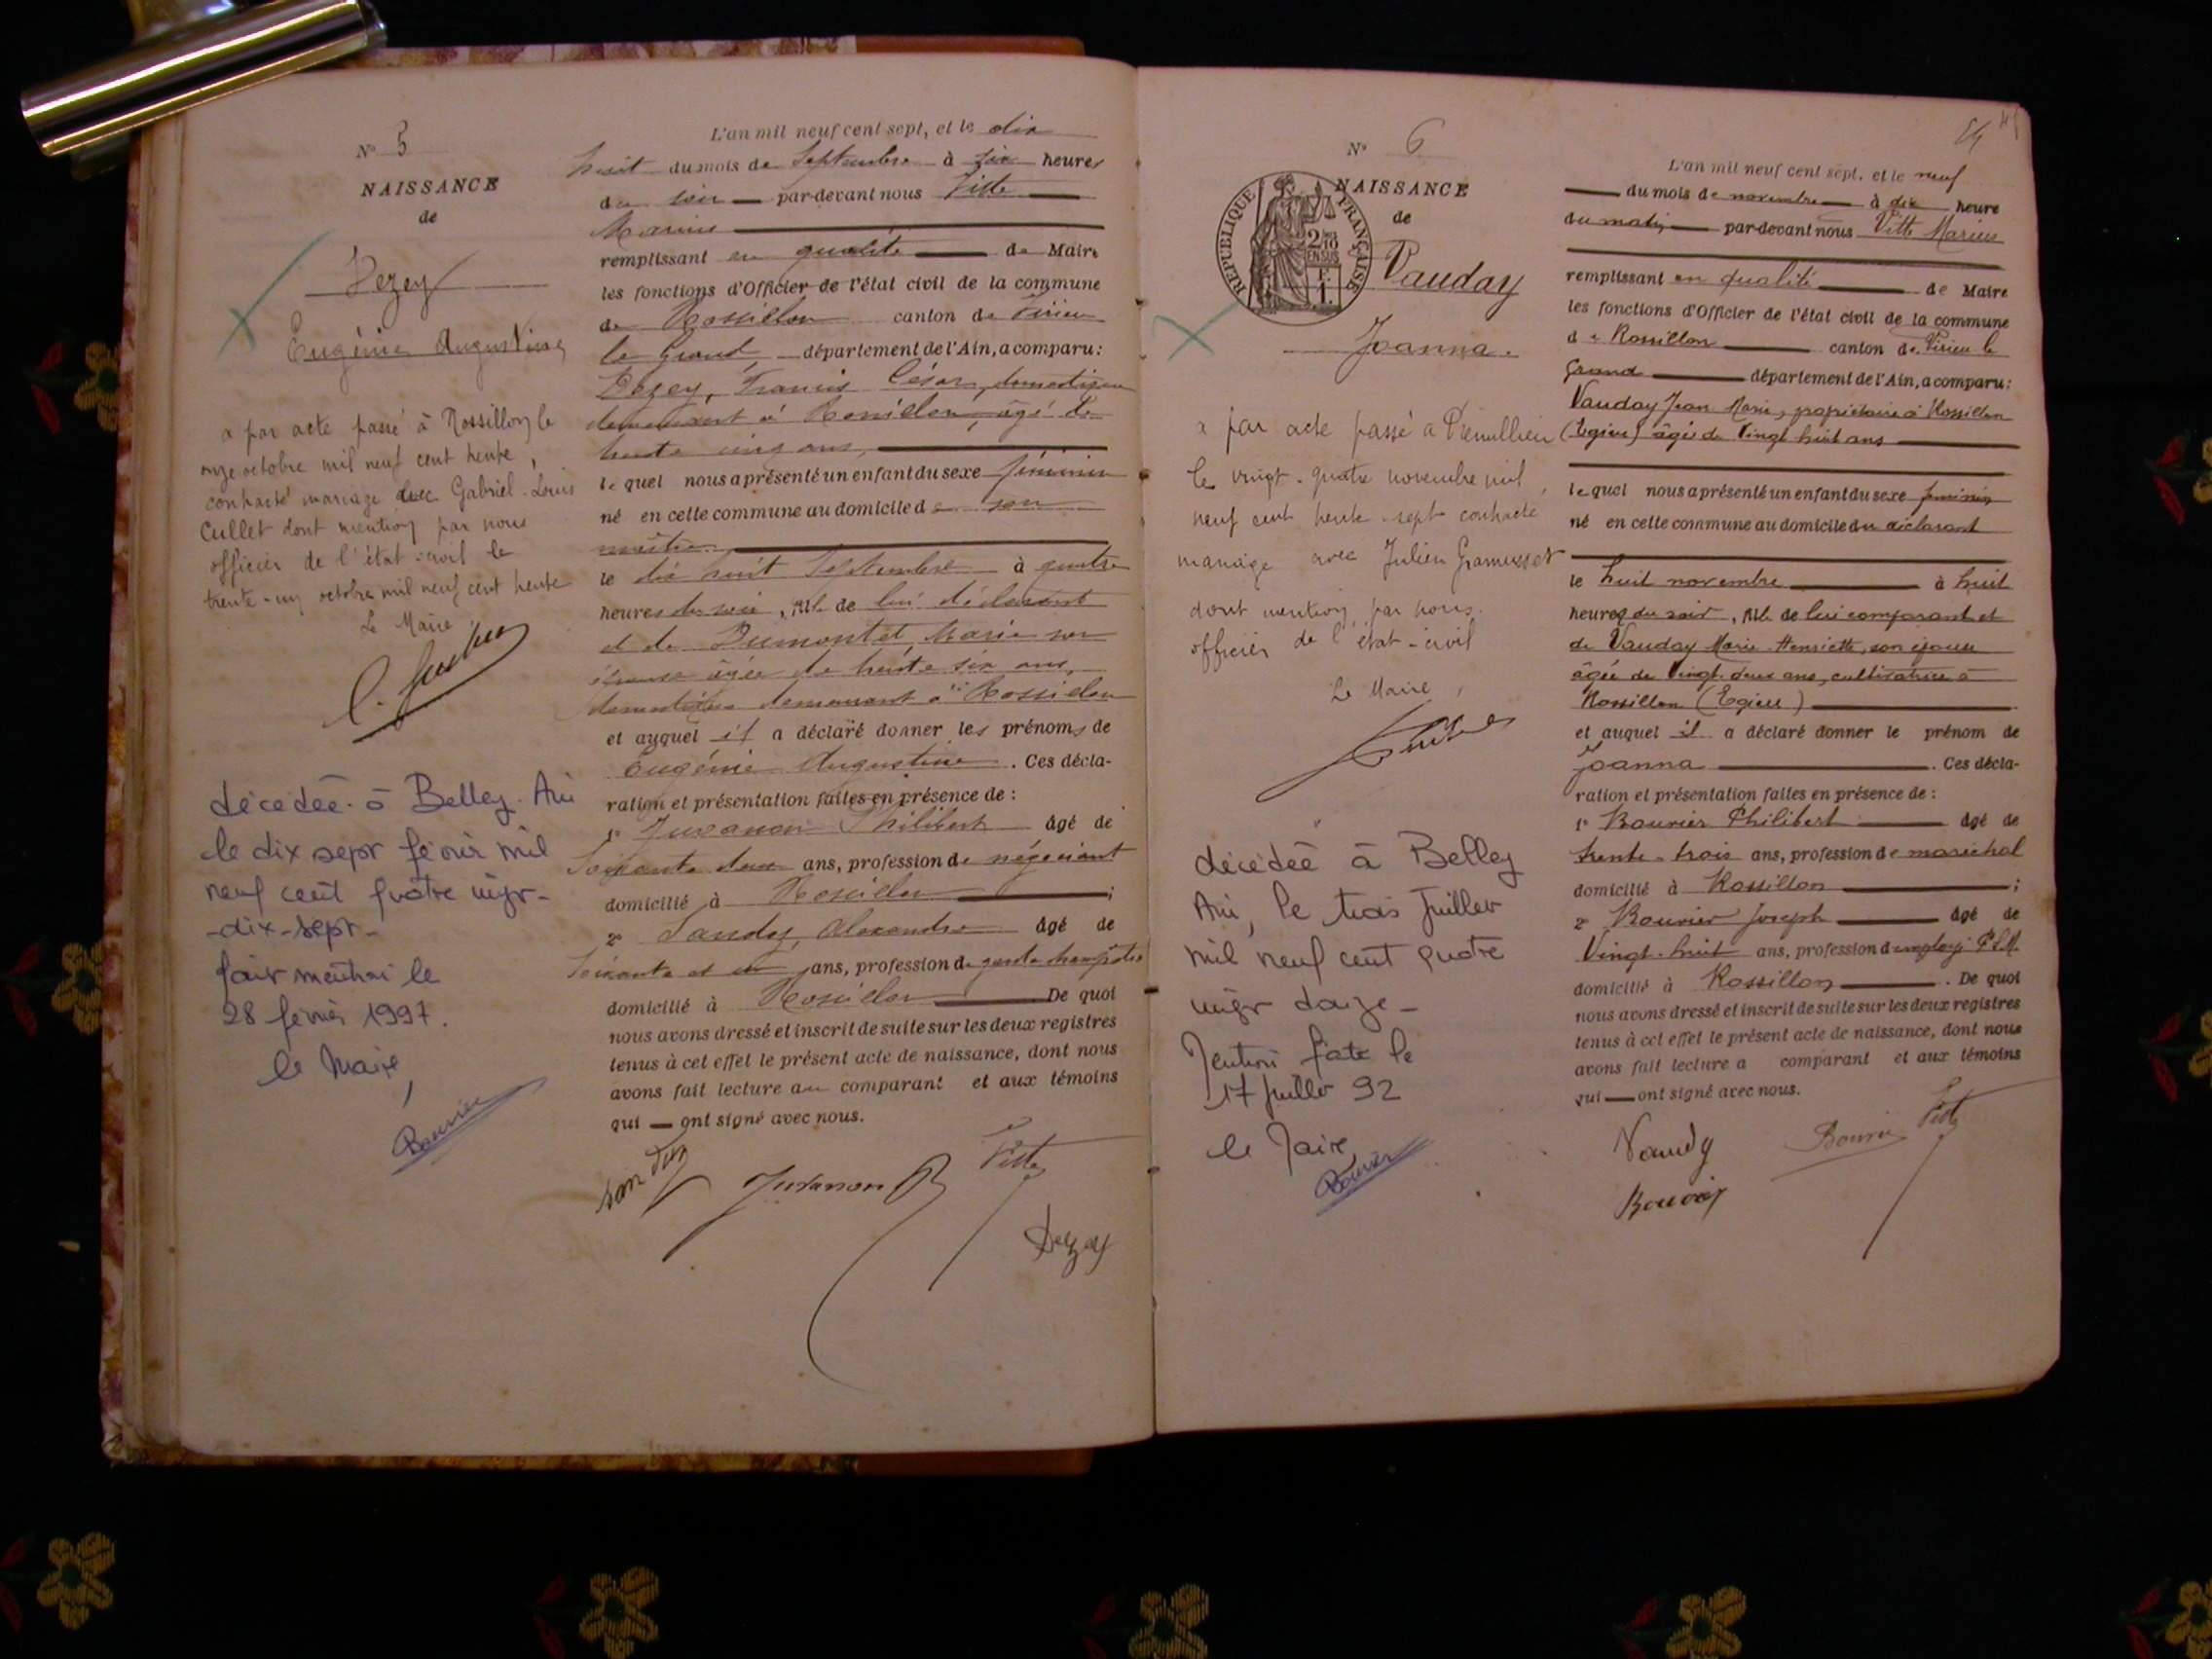 N° 5
NAISSANCE
de
Dezey
Eugénie Augustine
a par acte passé à Rossillon le
onze octobre mil neuf cent trente,
contracté mariage avec Gabriel-Louis
Cullet dont mention par nous
officier de l'état-civil le
trente-un octobre mil neuf cent trente
Le Maire
décédée à Belley Ain
le dix sept février mil
neuf cent quatre vingt-
-dix-sept-
fait mention le
28 février 1997.
le Maire,
Bouvier
L'an mil neuf cent sept, et le dix
huit du mois de Septembre à six heures
du soir par-devant nous Vitte
Marius
remplissant en qualité de Maire
les fonctions d'Officier de l'état civil de la commune
de Rossillon canton de Virieu
le Grand département de l'Ain, a comparu:
Dezey, Francis César, domestique
demeurant à Rossillon, âgé de
trente cinq ans,
lequel nous a présenté un enfant du sexe féminin
né en cette commune au domicile de son
maître
le dix huit Septembre à quatre
heures du soir, fille de lui déclarant
et de Dumontet, Marie son
épouse âgée de trente six ans,
domestique demeurant à Rossillon
et auquel il a déclaré donner les prénoms de
Eugénie Augustine. Ces décla-
ration et présentation faites en présence de:
1° Juvanon Philibert âgé de
Soixante deux ans, profession de négociant
domicilié à Rossillon;
2° Sandoz, Alexandre âgé de
Soixante et un ans, profession de garde champêtre
domicilié à Rossillon De quoi
nous avons dressé et inscrit de suite sur les deux registres
tenus à cet effet le présent acte de naissance, dont nous
avons fait lecture au comparant et aux témoins
qui ont signé avec nous.
Juvanon
Vitte
Dezey
N° 6
NAISSANCE
de
REPUBLIQUE FRANÇAISE
2/10
EN SUS
Vauday
Joanna.
a par acte passé à
le vingt-quatre novembre mil
neuf cent trente-sept contracté
mariage avec Julien Gramusset
dont mention par nous
officier de l'état-civil
Le Maire,
décédée à Belley
Ain, le trois Juillet
mil neuf cent quatre
vingt douze-
Mention faite le
17 juillet 92
le Maire
Bouvier
L'an mil neuf cent sept, et le neuf
du mois de novembre à dix heure
du matin par-devant nous Vitte Marius
remplissant en qualité de Maire
les fonctions d'Officier de l'état civil de la commune
de Rossillon canton de Virieu le
Grand département de l'Ain, a comparu:
Vauday Jean Marie, propriétaire à Rossillon
(Egieu) âgé de Vingt huit ans
lequel nous a présenté un enfant du sexe féminin
né en cette commune au domicile du déclarant
le huit novembre à huit
heures du soir, fille de lui comparant et
de Vauday Marie Henriette, son épouse
âgée de Vingt-deux ans, cultivatrice à
Rossillon (Egieu)
et auquel il a déclaré donner le prénom de
Joanna. Ces décla-
ration et présentation faites en présence de:
1° Bouvier Philibert âgé de
trente-trois ans, profession de maréchal
domicilié à Rossillon;
2° Bouvier Joseph âgé de
Vingt-huit ans, profession d'employé P.L.M.
domicilié à Rossillon. De quoi
nous avons dressé et inscrit de suite sur les deux registres
tenus à cet effet le présent acte de naissance, dont nous
avons fait lecture a comparant et aux témoins
qui ont signé avec nous.
Vauday
Bouvier
Vitte
Bouvier